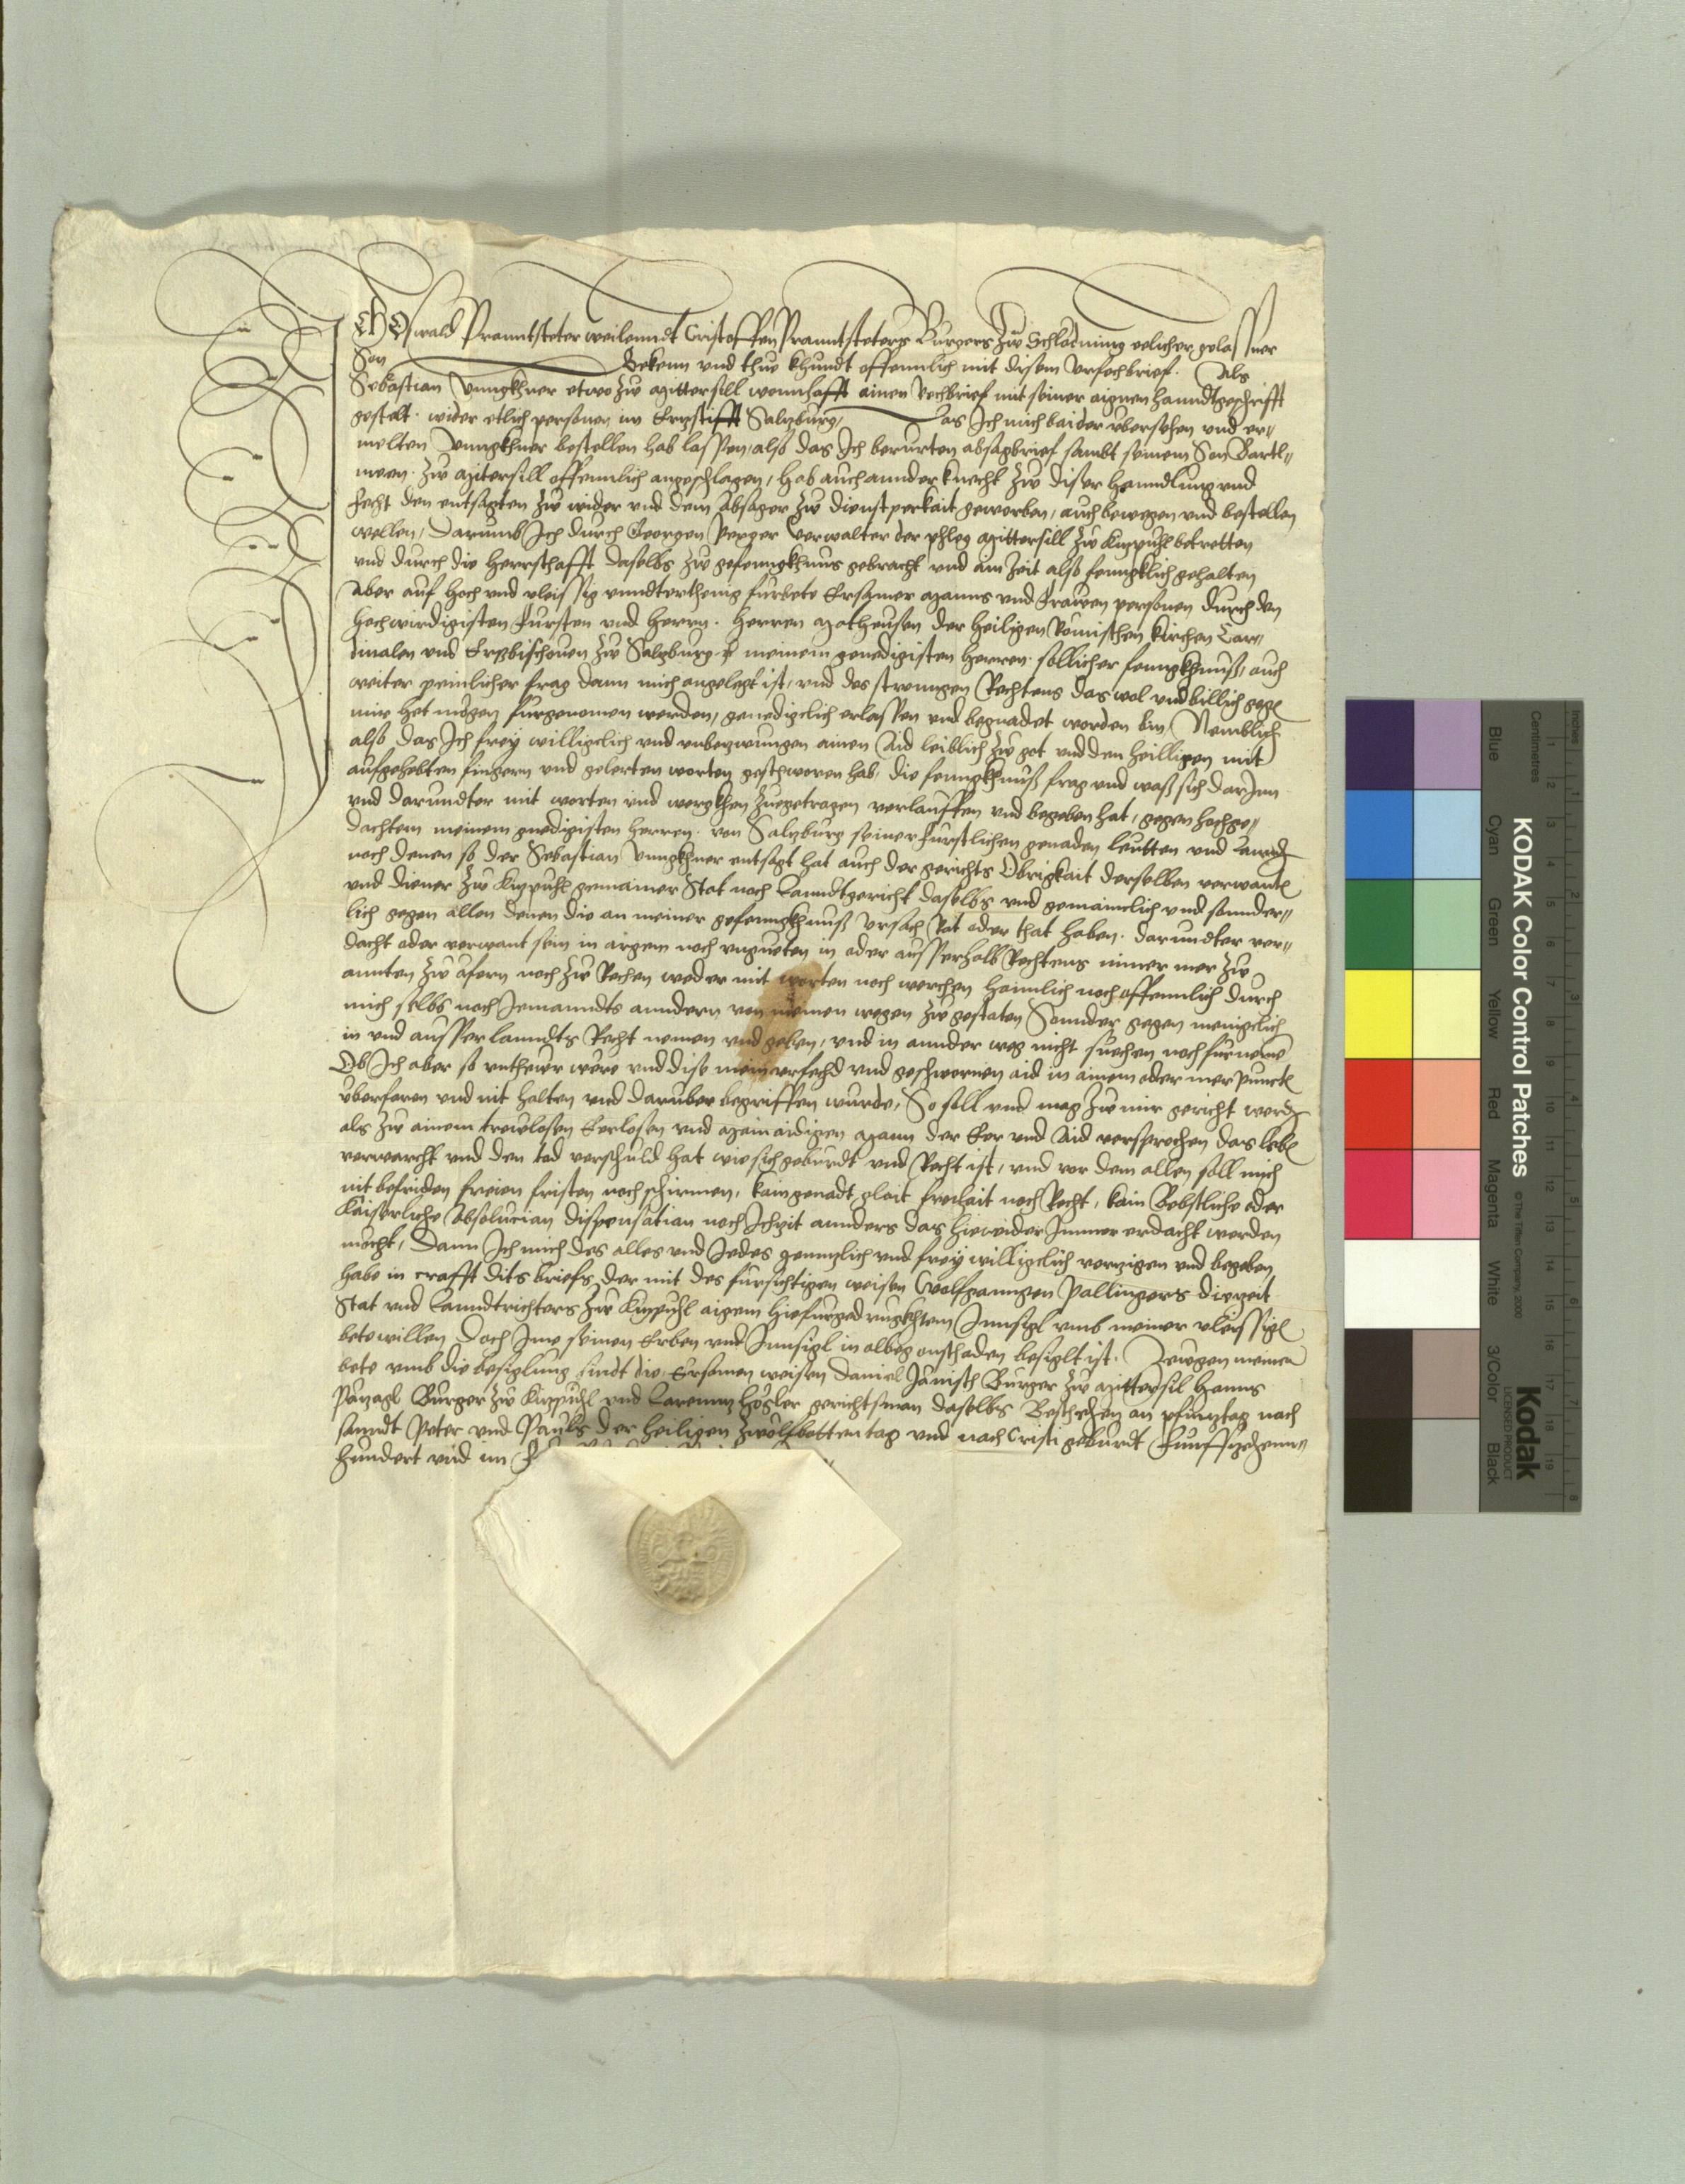 Ich Oswald Pranntsteter weilenndt Cristoffen Pranntsteters Burgers zw Schladming eelicher gelassner
Son Bekenn vnd thue khundt offennlich mit disem Vrfechbrief. Als
Sebastian Vnngkhner etwo zw Mittersill wonnhafft ainen Vechbrief mit seiner aignen hanndtgeschrifft
gestelt wider etlich personen im Ertzstifft Saltzburg, Das Ich mich laider vbersehen vnd er-
melten Vnngkhner bestellen hab lassen, also das Ich berurten absagbrief sambt seinem Son Bartl-
meen zw Mitersill offennlich angeschlagen, Hab auch annder knecht zw diser hanndlung vnd
fecht den entsagten zw wider vnd dem Absager zw dienstperkait geworben, auch bewegen vnd bestellen
wellen, Darumb Ich durch Georgen Perger Verwalter der phleg Mittersill zw Kitzpuhl betretten
vnd durch die Herrschafft daselbs zw gefenngkhnus gebracht vnd ain Zeit also fenngklich gehalten
Aber auf hoch vnd vleissig vnndterthenig furbete Ersamer Manns vnd Frawen personen durch den
hochwirdigisten Fursten vnd herrn. Herren Matheusen der heiligen Romischen kirchen Car-
dinalen vnd Ertzbischouen zw Saltzburg meinem genedigisten herren. sollicher fenngkhnuß, auch
weiter peinlicher frag dann mich angelegt ist, vnd des strenngen Rechtens das wol vnd billich gege
mir het mögen furgenomen werden, genedigclich erlassen vnd begnadet worden bin, Nemblich
also das Ich frey willigclich vnd vnbezwungen ainen Aid leiblich zw got vnd den heilligen mit
aufgehebten fingern vnd gelerten worten geschworen hab, die fenngkhnuß frag vnd waß sich darInn
vnd darundter mit worten vnd werckhen zuegetragen verlauffen vnd begeben hat, gegen hochge-
dachtem meinem gnedigisten herren von Saltzburg seiner Furstlichen genaden leutten vnd Lannd
noch denen so der Sebastian Vnngkhner entsagt hat auch der gerichts Obrigkait derselben verwante
vnd diener zw Kitzpuhl gemainer Stat noch Lanndtgericht daselbs vnd gemainclich vnd sonnder-
lich gegen allen denen die an meiner gefenngkhnuß vrsach Rat oder that haben. darundter ver-
dacht oder verwant sein in argem noch vnguetem in oder ausserhalb Rechtens nimer mer zw
annten zw äfern noch zw Rechen weder mit worten noch werchen haimlich noch offennlich durch
mich selbs noch Jemanndts anndern von meinen wegen zw gestaten Sonnder gegen menigclich
in vnd ausser lanndts Recht nemen vnd geben, vnd in annder weg nicht suechen noch furneme
Ob Ich aber so vnthewr were vnd dise mein vrfechd vnd geschwornen aid in ainem oder mer puncte
vberfaren vnd nit halten vnd daruber begriffen wurde, So soll vnd mag zw mir gericht werd
als zw ainem trewlosen Eerlosen vnd Mainaidigen Mann der Eer vnd Aid versprochen das lebe
verwarcht vnd den tod verschuld hat wie sich geburdt vnd Recht ist, vnd vor dem allen soll mich
nit befriden freien fristen noch schirmen, kain genadt glait Freihait noch Recht, kain Bebstliche oder
Kaiserliche Absolucian dispensatian noch Ichtzit annders das hiewider Immer erdacht werden
mocht, Dann Ich mich des alles vnd Jedes genntzlich vnd frey willigclich vertzigen vnd begeben
habe in crafft dits briefs, der mit des fursichtigen weisen Wolfganngen Pallingers dietzeit
Stat vnd Lanndtrichters zw Kitzpuhl aigem hiefurgedrugkhtem Innsigl vmb meiner vleissige
bete willen Doch Ime seinen Erben vnd Innsigl in albeg onschaden besiglt ist. Zewgen meiner
bete vmb die besiglung sindt die Ersamen weisen Daniel Jänisch Burger zw Mittersil Hanns
Burger zw Kitzpuhl vnd Larenntz Hößler gerichtsman daselbs Beschehen an pfintztag nach
sanndt Peter vnd Pauls der heiligen Zwölfbotten tag vnd nach Cristi geburdt Funffzehenn-
hundert vnd im
KODAK Color Control Patches
© The Tiffen Company, 2000
Kodak
LICENSED PRODUCT
Inches
Centimetres
Blue
Cyan
Green
Yellow
Red
Magenta
White
3/Color
Black